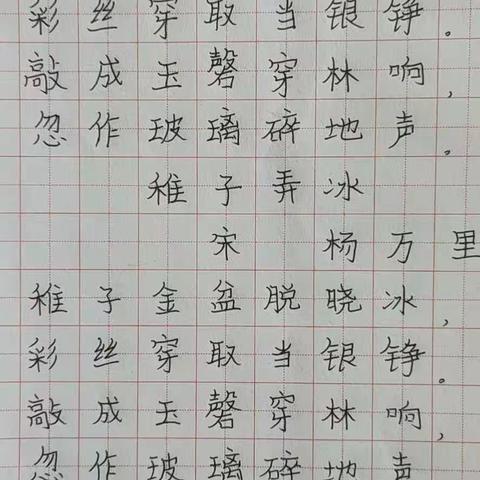 彩丝穿取当银铮。
敲成玉磬穿林响，
忽作玻璃碎地声。
稚子弄冰
宋 杨万里
稚子金盆脱晓冰，
彩丝穿取当银铮。
敲成玉磬穿林响，
忽作玻璃碎地声